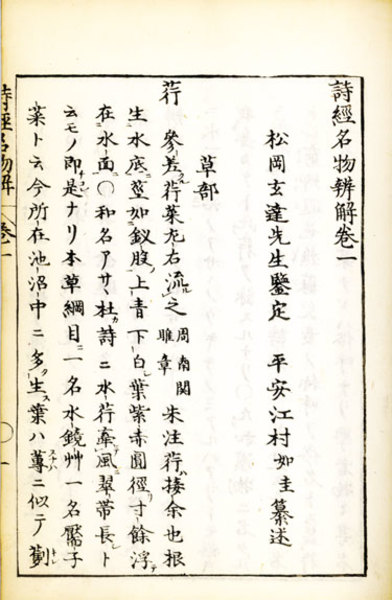 詩經名物辨解卷一
松岡玄達先生鑒定 平安江村如圭纂述
草部
荇 參差荇菜左右流之 周南關雎章 朱注荇接余也根
生水底莖如釵股上青下白葉紫赤圓徑寸餘浮
在水面〇和名アサヽ杜詩ニ水荇牽風翠帶長ト
云モノ即是ナリ本草綱目ニ一名水鏡艸一名靨子
菜ト云今所在池沼中ニ多生ス葉ハ蓴ニ似テ
詩經名物解 卷一 一